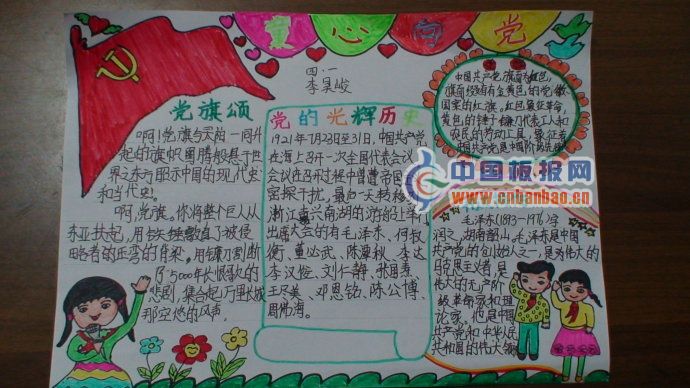 童心向党
四：一
李昊峻
党旗颂
啊！党旗与天安门一同升
起的旗帜图腾般悬于世
界之东方昭示中国的现代史
和当代史！
啊，党旗。你将整个巨人从
东亚扶起，用
略者的
用镰刀割断
了5000年长恨歌的
悲剧，集合起万里长城
那空
的风声。
党的光辉历史
1921年7月23日至31日，中国共产党
在海上召开一次全国代表会议
会议在召开过程中曾遭帝国
密探干扰，最后一天转移
浙江嘉兴南湖的游船上举
出席大会的有毛泽东、何叔
衡、董必武、陈潭秋、李达
李汉俊、刘仁静、张国焘、
王尽美、邓恩铭、陈公博、
周佛海。
中国共产党旗面为红色，
旗角缀有金黄色的党徽
国家的红旗，红色象征革命，
黄色的锤子镰刀代表工人和
农民的劳动工具，象征着
中国共产党是中国工人阶级先锋
中国板报网
www.cnbanbao.cn
毛泽东(1893-1976)字
润之，湖南韶山。毛泽东是中国
共产党的创始人之一，是为伟大的
马克思主义者，是
伟大的无产阶
级革命家和理
论家，他是中国
共产党和中华人民
共和国的伟大领